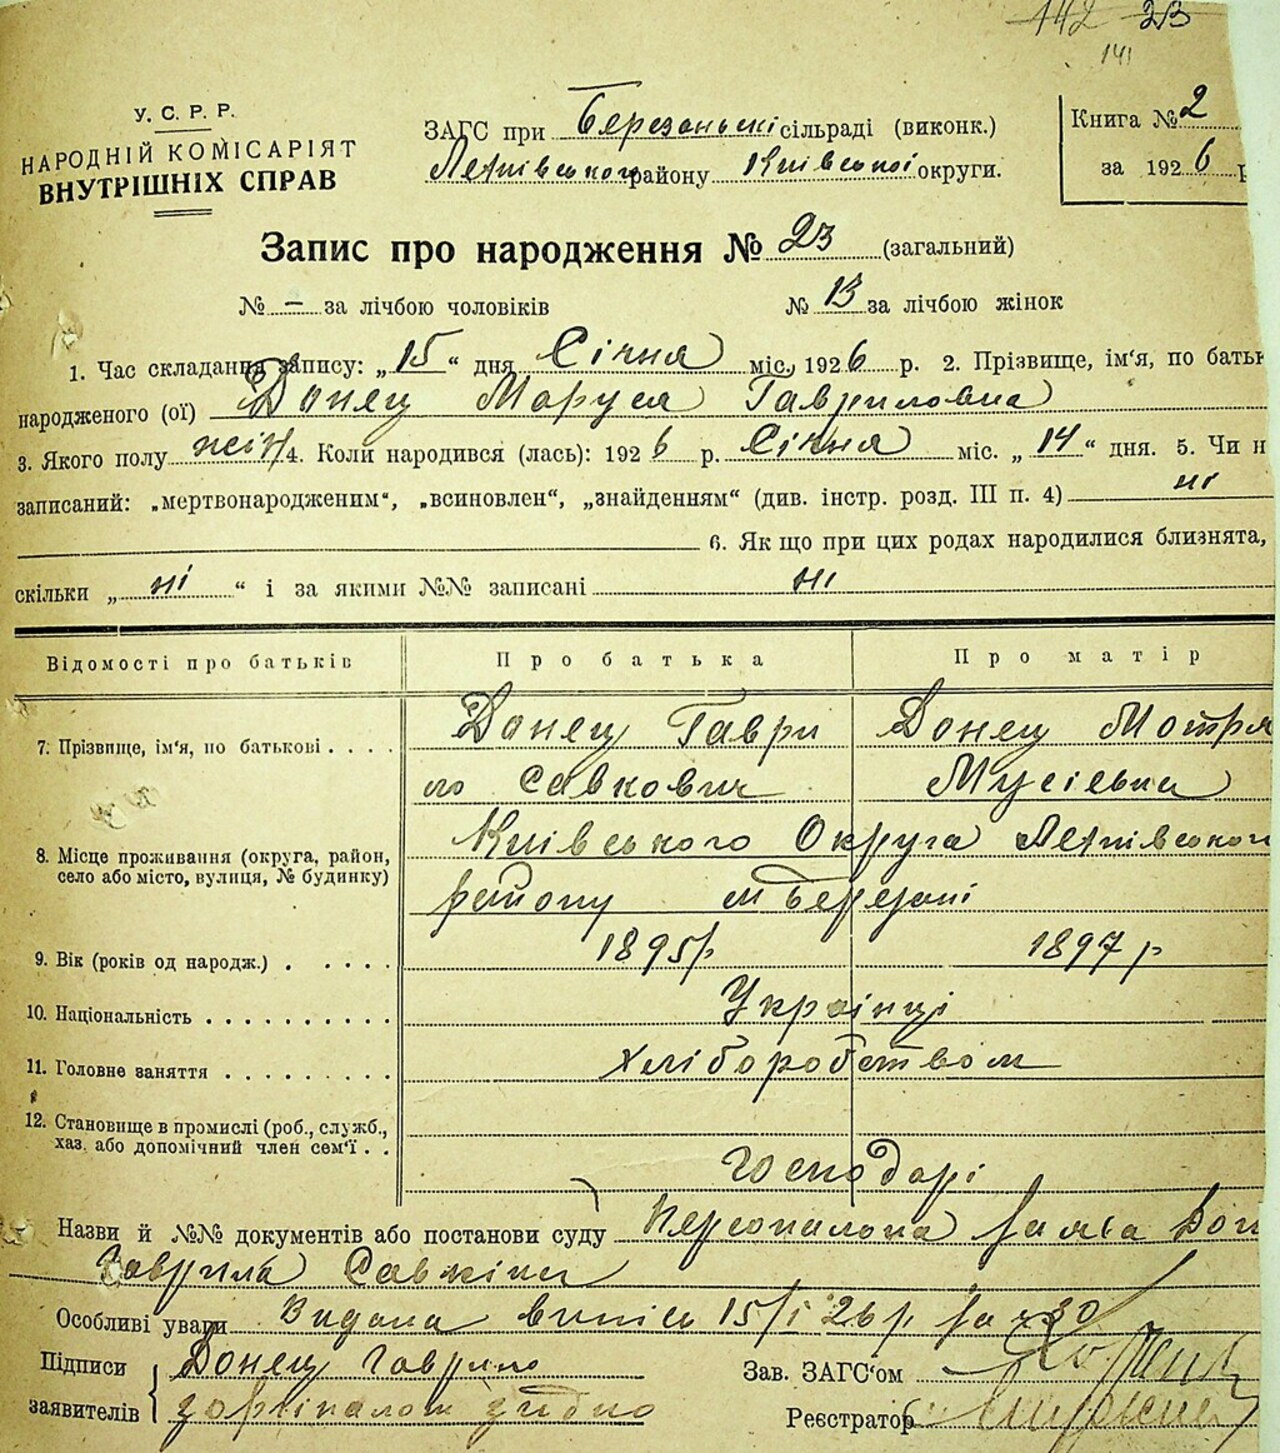 142 23
141
У. С. Р. Р.
НАРОДНІЙ КОМІСАРІЯТ
ВНУТРІШНІХ СПРАВ
ЗАГС при Березанські сільраді (виконк.)
району Київської округи.
Книга № 2
за 1926 р
Запис про народження № 23 (загальний)
№ — за лічбою чоловіків № 13 за лічбою жінок
1. Час складання запису: „15“ дня Січня міс, 1926 р. 2. Прізвище, ім'я, по батьк
народженого (ої) Донец Маруся Гавриловна
3. Якого полу жін 4. Коли народився (лась): 1926 р. Січня міс. „14“ дня. 5. Чи н
записаний: „мертвонародженим“, „всиновлен“, „знайденням“ (див. інстр. розд. III п. 4) ні
6. Як що при цих родах народилися близнята,
скільки „ні“ і за якими №№ записані ні
Відомості про батьків Про батька Про матір
7. Прізвище, ім'я, по батькові . . . . Донец Гаври Донец Мотря
ло Савкович Мусіевна
8. Місце проживання (округа, район, Київського Округа
село або місто, вулиця, № будинку) району м Березані
9. Вік (років од народж.) . . . . . 1895р 1897 р
10. Національність . . . . . . . . . . Українці
11. Головне заняття . . . . . . . . . хліборобством
12. Становище в промислі (роб., служб.,
хаз. або допомічний член сем'ї . . Господарі
Назви й №№ документів або постанови суду заява Дон
Гаврила
Особливі уваги Видана випись 15/I 26р за № 30
Підписи Донец Гаврило
заявителів з орігіналом згідно
Зав. ЗАГС'ом
Реєстратор